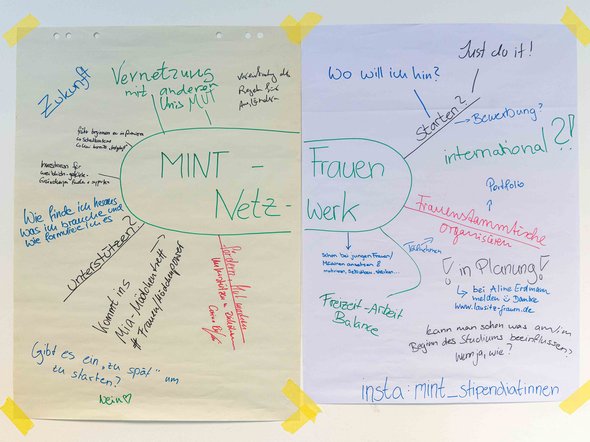 Zukunft
Vernetzung
mit anderen
Unis MUT
MINT -
Netz -
Wie finde ich heraus
was ich brauche und
wie formuliere ich es
Unterstützen?
Kommt ins
Mia-Mädchentreff
#Frauen/Mädchenpower
Gibt es ein „zu spät" um
zu starten?
Nein♡
Just do it!
Wo will ich hin?
Starten?
→ Bewerbung?
international?!
Frauen
Werk
Portfolio
↑
Frauenstammtische
organisieren
Teilnehmen
schon bei jungen Frauen/
Mädchen ansetzen &
Freizeit-Arbeit
Balance
! in Planung !
↳ bei Aline Erdmann
melden ☺ Danke
www.lausitz-frauen.de
kann man schon was am/im
Beginn des Studiums beeinflussen?
Wenn ja, wie?
insta: mint_stipendiatinnen